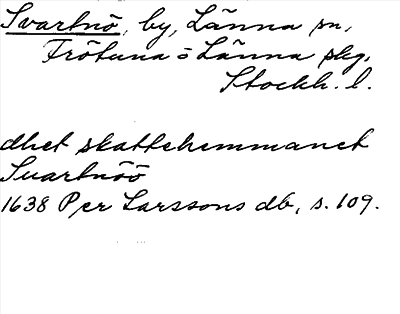 Svartnö, by, Länna sn,
Frötuna o Länna skg,
Stockh. l.
dhet skattehemmanet
Suartnöö
1638 Per Larssons db, s. 109.